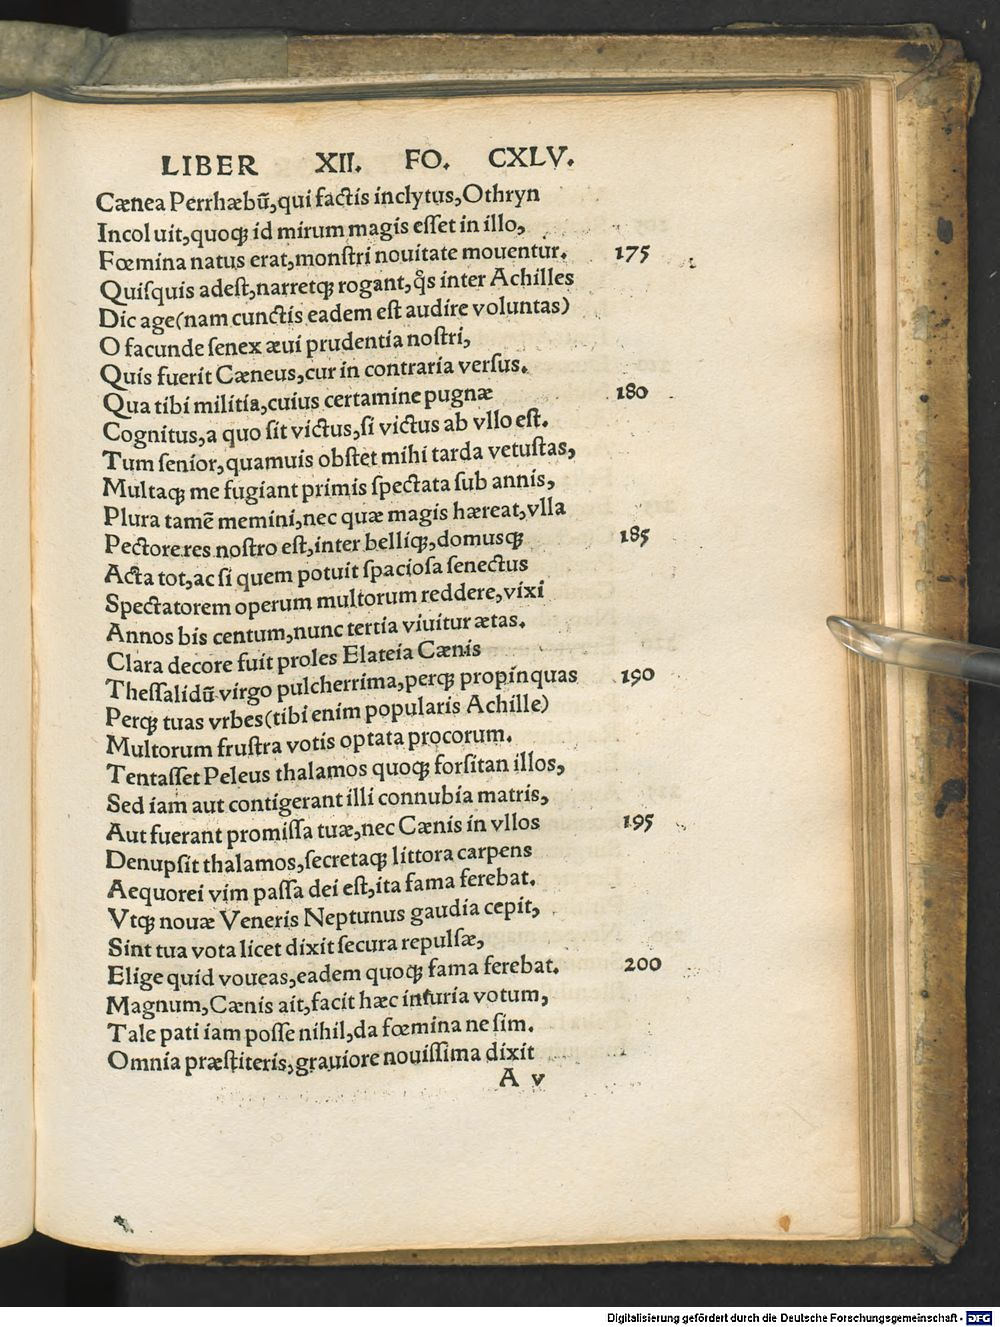 LIBER XII. FO. CXLV.
Cænea Perrhæbū,qui factis inclytus,Othryn
Incoluit,quoqꝫ id mirum magis eſſet in illo,
Fœmina natus erat,monſtri nouitate mouentur. 175
Quiſquis adeſt,narretqꝫ rogant,q̊s inter Achilles
Dic age(nam cunctis eadem eſt audire voluntas)
O facunde ſenex æui prudentia noſtri,
Quis fuerit Cæneus,cur in contraria verſus.
Qua tibi militia,cuius certamine pugnæ 180
Cognitus,a quo ſit victus,ſi victus ab vllo eſt.
Tum ſenior,quamuis obſtet mihi tarda vetuſtas,
Multaqꝫ me fugiant primis ſpectata ſub annis,
Plura tamē memini,nec quæ magis hæreat,vlla
Pectore res noſtro eſt,inter belliqꝫ,domusqꝫ 185
Acta tot,ac ſi quem potuit ſpacioſa ſenectus
Spectatorem operum multorum reddere,vixi
Annos bis centum,nunc tertia viuitur ætas.
Clara decore fuit proles Elateia Cænis
Theſſalidū virgo pulcherrima,perqꝫ propinquas 190
Perqꝫ tuas vrbes(tibi enim popularis Achille)
Multorum fruſtra votis optata procorum.
Tentaſſet Peleus thalamos quoqꝫ forſitan illos,
Sed iam aut contigerant illi connubia matris,
Aut fuerant promiſſa tuæ,nec Cænis in vllos 195
Denupſit thalamos,ſecretaqꝫ littora carpens
Aequorei vim paſſa dei eſt,ita fama ferebat.
Vtqꝫ nouæ Veneris Neptunus gaudia cepit,
Sint tua vota licet dixit ſecura repulſæ,
Elige quid voueas,eadem quoqꝫ fama ferebat. 200
Magnum,Cænis ait,facit hæc iniuria votum,
Tale pati iam poſſe nihil,da fœmina ne ſim.
Omnia præſtiteris,grauiore nouiſſima dixit
A v
Digitalisierung gefördert durch die Deutsche Forschungsgemeinschaft - DFG